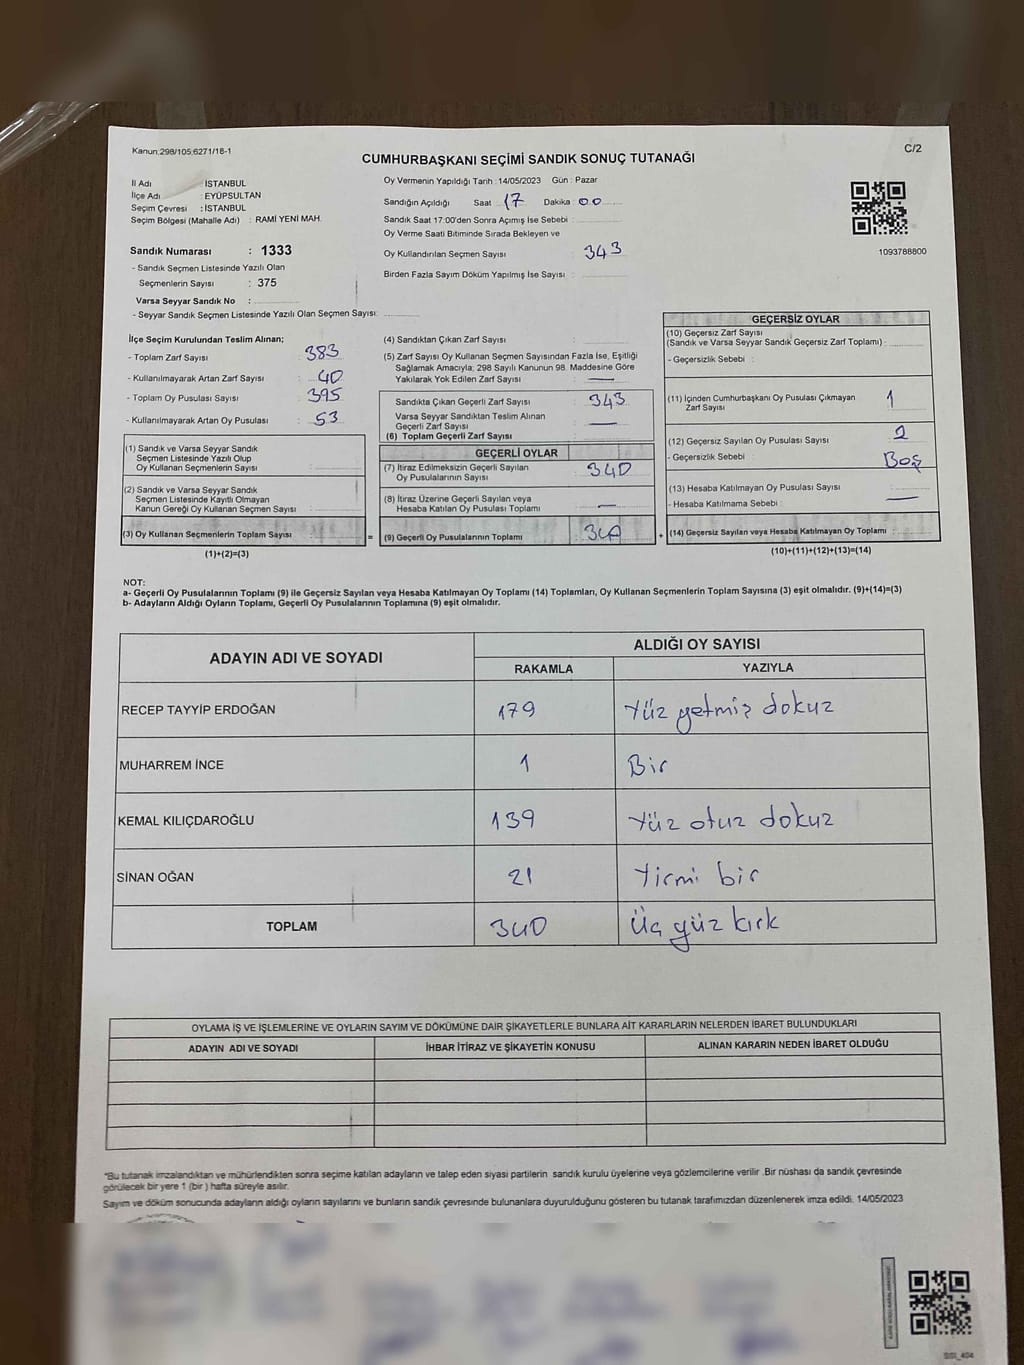 Kanun:298/105;6271/18-1
C/2
CUMHURBAŞKANI SEÇİMİ SANDIK SONUÇ TUTANAĞI
İl Adı : İSTANBUL
İlçe Adı : EYÜPSULTAN
Seçim Çevresi : İSTANBUL
Seçim Bölgesi (Mahalle Adı) : RAMİ YENİ MAH.
Sandık Numarası : 1333
- Sandık Seçmen Listesinde Yazılı Olan
Seçmenlerin Sayısı : 375
Varsa Seyyar Sandık No :
- Seyyar Sandık Seçmen Listesinde Yazılı Olan Seçmen Sayısı:
Oy Vermenin Yapıldığı Tarih : 14/05/2023 Gün : Pazar
Sandığın Açıldığı Saat : 17 Dakika : 00
Sandık Saat 17:00'den Sonra Açımış İse Sebebi :
Oy Verme Saati Bitiminde Sırada Bekleyen ve
Oy Kullandırılan Seçmen Sayısı : 343
Birden Fazla Sayım Döküm Yapılmış İse Sayısı :
1093788800
İlçe Seçim Kurulundan Teslim Alınan;
- Toplam Zarf Sayısı : 383
- Kullanılmayarak Artan Zarf Sayısı : 40
- Toplam Oy Pusulası Sayısı : 395
- Kullanılmayarak Artan Oy Pusulası : 53
(1) Sandık ve Varsa Seyyar Sandık
Seçmen Listesinde Yazılı Olup
Oy Kullanan Seçmenlerin Sayısı :
(2) Sandık ve Varsa Seyyar Sandık
Seçmen Listesinde Kayıtlı Olmayan
Kanun Gereği Oy Kullanan Seçmen Sayısı :
(3) Oy Kullanan Seçmenlerin Toplam Sayısı =
(1)+(2)=(3)
(4) Sandıktan Çıkan Zarf Sayısı :
(5) Zarf Sayısı Oy Kullanan Seçmen Sayısından Fazla İse, Eşitliği
Sağlamak Amacıyla; 298 Sayılı Kanunun 98. Maddesine Göre
Yakılarak Yok Edilen Zarf Sayısı : —
Sandıkta Çıkan Geçerli Zarf Sayısı : 343
Varsa Seyyar Sandıktan Teslim Alınan
Geçerli Zarf Sayısı : —
(6) Toplam Geçerli Zarf Sayısı :
GEÇERLİ OYLAR
(7) İtiraz Edilmeksizin Geçerli Sayılan
Oy Pusulalarının Sayısı : 340
(8) İtiraz Üzerine Geçerli Sayılan veya
Hesaba Katılan Oy Pusulası Toplamı : —
(9) Geçerli Oy Pusulalarının Toplamı : 340 +
GEÇERSİZ OYLAR
(10) Geçersiz Zarf Sayısı
(Sandık ve Varsa Seyyar Sandık Geçersiz Zarf Toplamı) :
- Geçersizlik Sebebi :
(11) İçinden Cumhurbaşkanı Oy Pusulası Çıkmayan
Zarf Sayısı : 1
(12) Geçersiz Sayılan Oy Pusulası Sayısı : 2
- Geçersizlik Sebebi : Boş
(13) Hesaba Katılmayan Oy Pusulası Sayısı :
- Hesaba Katılmama Sebebi : —
(14) Geçersiz Sayılan veya Hesaba Katılmayan Oy Toplamı :
(10)+(11)+(12)+(13)=(14)
NOT:
a- Geçerli Oy Pusulalarının Toplamı (9) ile Geçersiz Sayılan veya Hesaba Katılmayan Oy Toplamı (14) Toplamları, Oy Kullanan Seçmenlerin Toplam Sayısına (3) eşit olmalıdır. (9)+(14)=(3)
b- Adayların Aldığı Oyların Toplamı, Geçerli Oy Pusulalarının Toplamına (9) eşit olmalıdır.
ADAYIN ADI VE SOYADI
ALDIĞI OY SAYISI
RAKAMLA YAZIYLA
RECEP TAYYİP ERDOĞAN 179 Yüz yetmiş dokuz
MUHARREM İNCE 1 Bir
KEMAL KILIÇDAROĞLU 139 Yüz otuz dokuz
SİNAN OĞAN 21 Yirmi bir
TOPLAM 340 Üç yüz kırk
OYLAMA İŞ VE İŞLEMLERİNE VE OYLARIN SAYIM VE DÖKÜMÜNE DAİR ŞİKAYETLERLE BUNLARA AİT KARARLARIN NELERDEN İBARET BULUNDUKLARI
ADAYIN ADI VE SOYADI İHBAR İTİRAZ VE ŞİKAYETİN KONUSU ALINAN KARARIN NEDEN İBARET OLDUĞU
*Bu tutanak imzalandıktan ve mühürlendikten sonra seçime katılan adayların ve talep eden siyasi partilerin sandık kurulu üyelerine veya gözlemcilerine verilir .Bir nüshası da sandık çevresinde
görülecek bir yere 1 (bir ) hafta süreyle asılır.
Sayım ve döküm sonucunda adayların aldığı oyların sayılarını ve bunların sandık çevresinde bulunanlara duyurulduğunu gösteren bu tutanak tarafımızdan düzenlenerek imza edildi. 14/05/2023